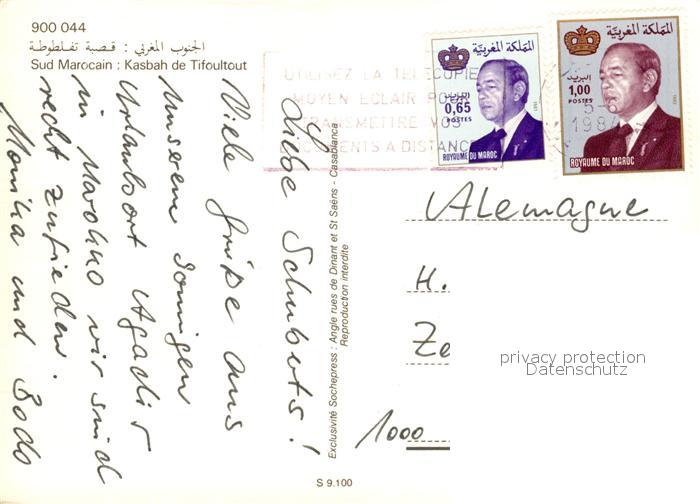 900 044
الجنوب المغربي : قصبة تفلطوطة
Sud Marocain : Kasbah de Tifoultout
UTILISEZ LA TELECOPIE
MOYEN ECLAIR POUR
TRANSMETTRE VOS
DOCUMENTS A DISTANCE
المملكة المغربية
البريد
0,65
POSTES
ROYAUME DU MAROC
المملكة المغربية
البريد
1,00
POSTES
198
ROYAUME DU MAROC
Liebe Schuberts!
Viele Grüße aus
unserem sonnigen
Urlaubsort Agadir
in Marokko wir sind
recht zufrieden.
Monika und Bodo
Exclusivité Sochepress : Angle rues de Dinant et St Saëns - Casablanca
Reproduction interdite
Alemagne
H.
Ze
1000
privacy protection
Datenschutz
S 9.100